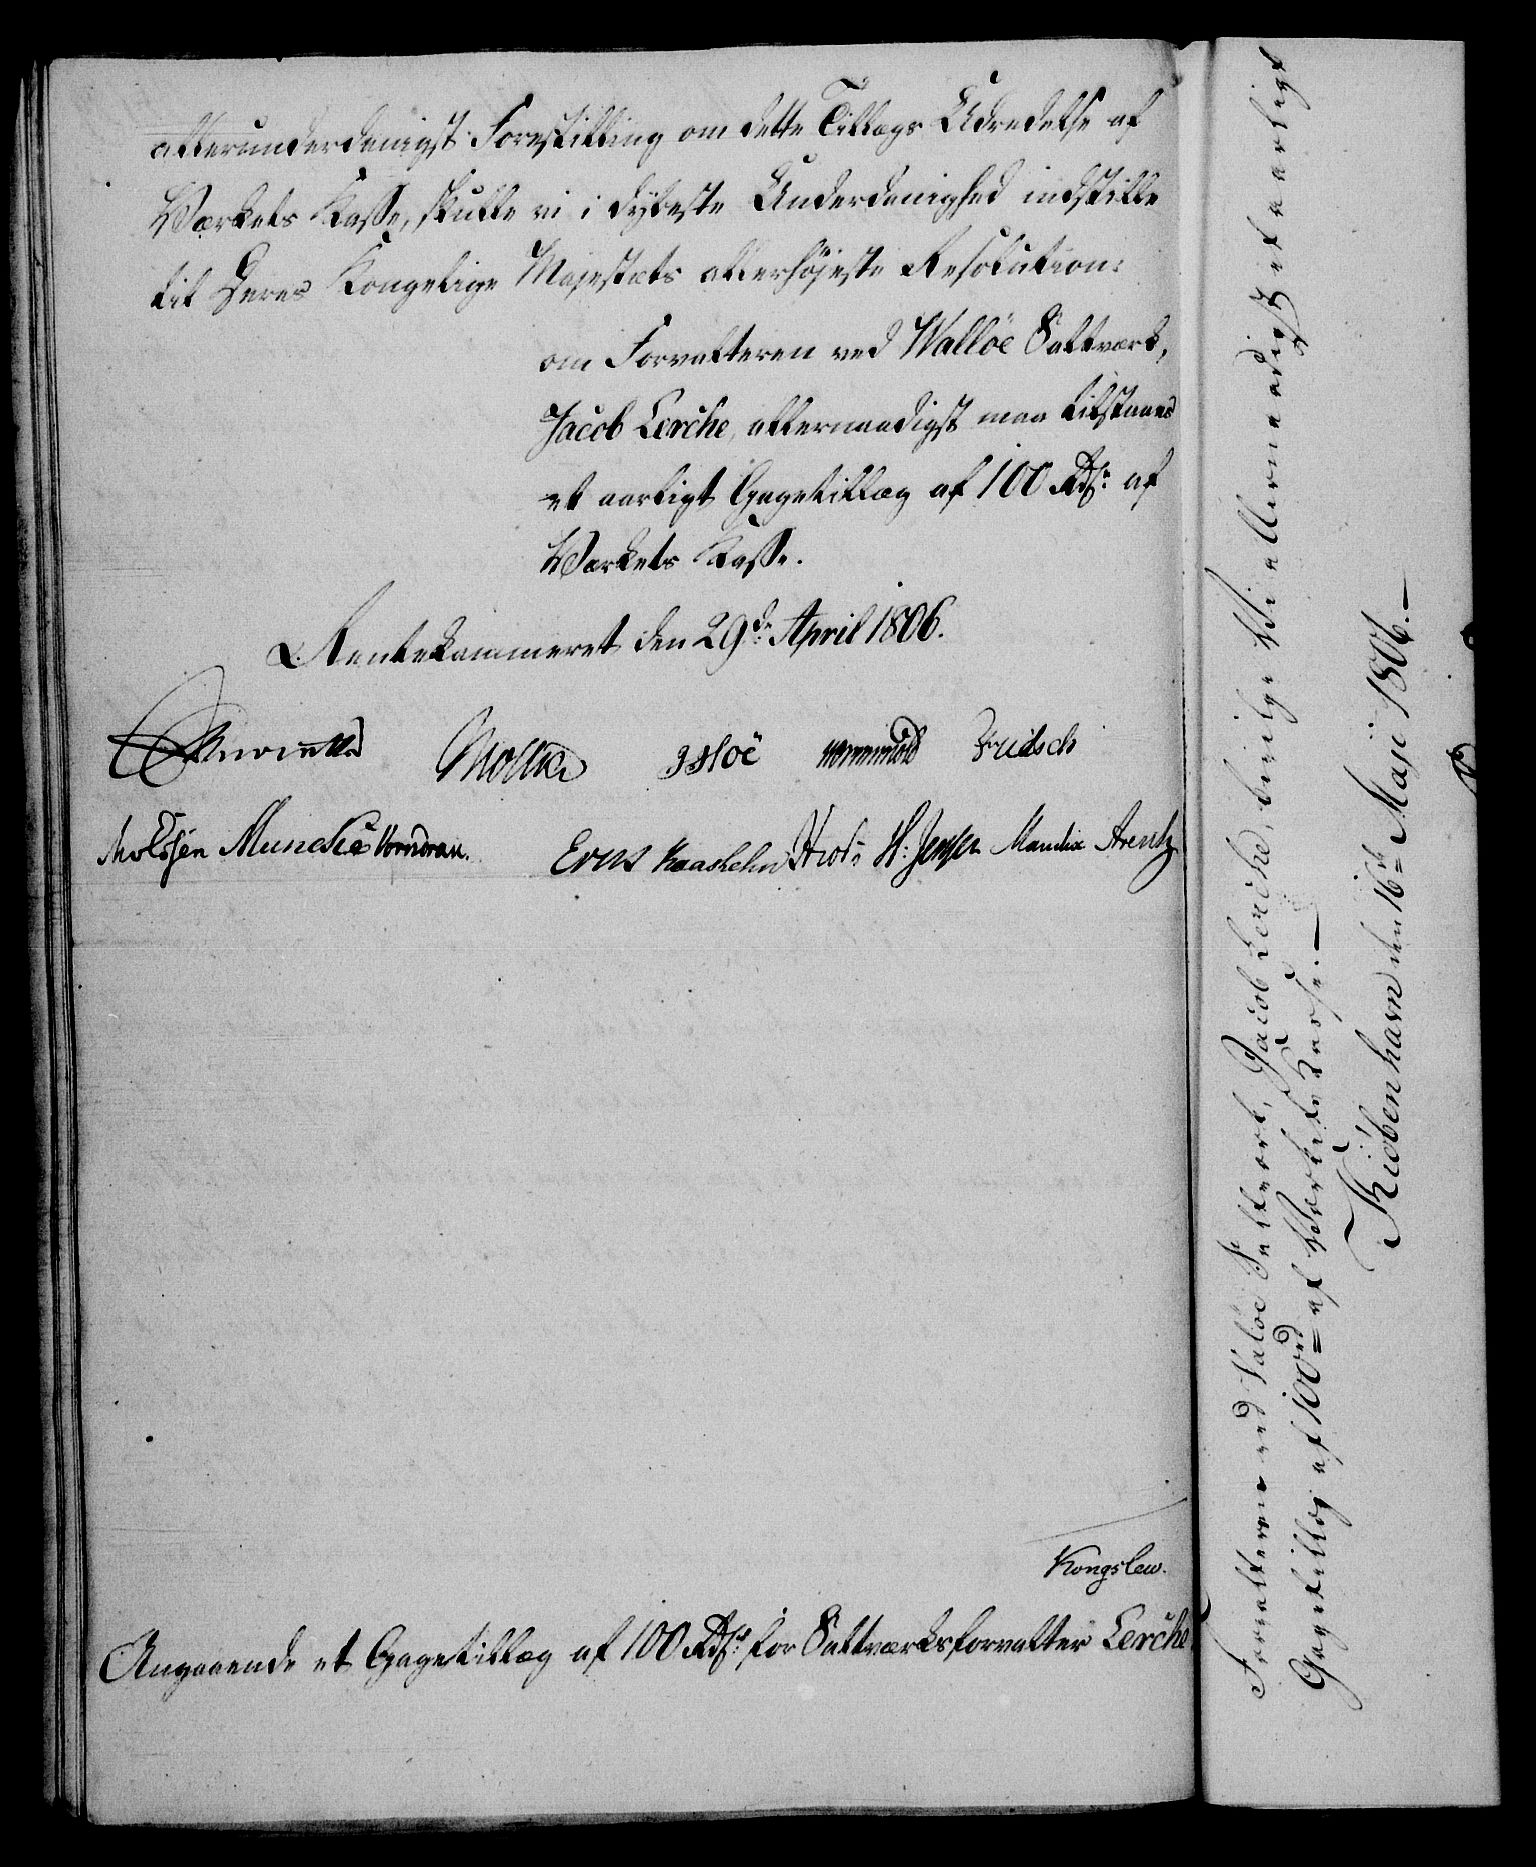 allerunderdanigst Forestilling om dette Tillægs Udredelse af
Værkets Kasse, skulle vi i dybeste Underdanighed indstille
til Deres Kongelige Majestæts allerhøjeste Resolution:
om Forvalteren ved Walløe Saltværk,
Jacob Lerche, allernaadigst maa tilstaaes
et aarligt Gagetillæg af 100 Rdr. af
Værkets Kasse.
Rentekammeret den 29de April 1806.
Moltke Wormskiold Fritsch
Knoblauch H: Jensen Manthe Arentz
Kongslew.
Angaaende et Gagetillæg af 100 Rdr. for Saltværksforvalter Lerche
Forvalteren ved Valøe Saltværk, Jacob Lerche, bevilge Vi allernaadigst et aarligt
Gagetillæg af 100 rd af Værkets Kasse. —
Kiøbenhavn den 16de Maji 1806. —